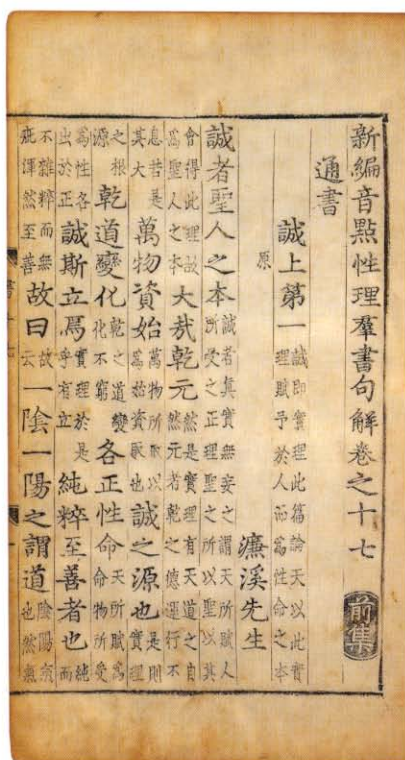 新編音點性理羣書句解卷之十七 前集
通書
誠上第一 誠即實理此篇論天以此實理賦予於人而爲性命之本
原 濂溪先生
誠者聖人之本 誠者真實無妄之謂天所賦人所受之正理聖之所以聖以其
會得此理故爲聖人之本 大哉乾元 然是實理有天道之自然元者乾之德運行不
息若是其大 萬物資始 萬物所取以爲始資取也 誠之源也 是則實理
之根源 乾道變化 乾之道變化不窮 各正性命 天所賦爲命物所受
爲性各出於正 誠斯立焉 實理於是乎有立 純粹至善者也 純而
不雜粹而無疵渾然至善 故曰 故云 一陰一陽之謂道 陰陽氣也然無